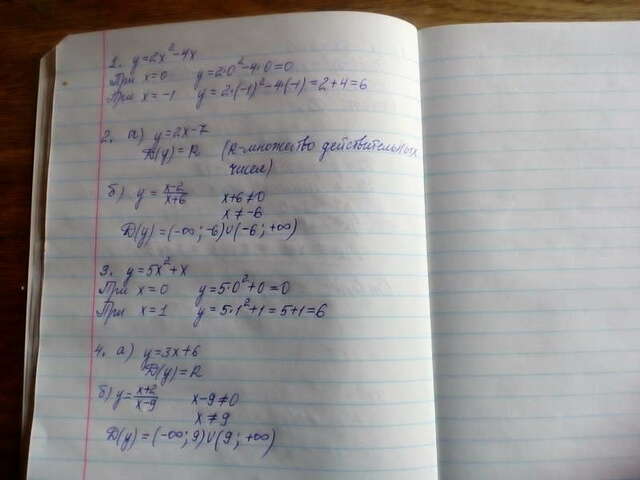 1. y=2x²-4x
При x=0 y=2·0²-4·0=0
При x=-1 y=2·(-1)²-4·(-1)=2+4=6
2. а) y=2x-7
D(y)=R (R-множество действительных
чисел)
б) y=\frac{x-2}{x+6} x+6≠0
x≠-6
D(y)=(-∞;-6)∪(-6;+∞)
3. y=5x²+x
При x=0 y=5·0²+0=0
При x=1 y=5·1²+1=5+1=6
4. а) y=3x+6
D(y)=R
б) y=\frac{x+2}{x-9} x-9≠0
x≠9
D(y)=(-∞;9)∪(9;+∞)